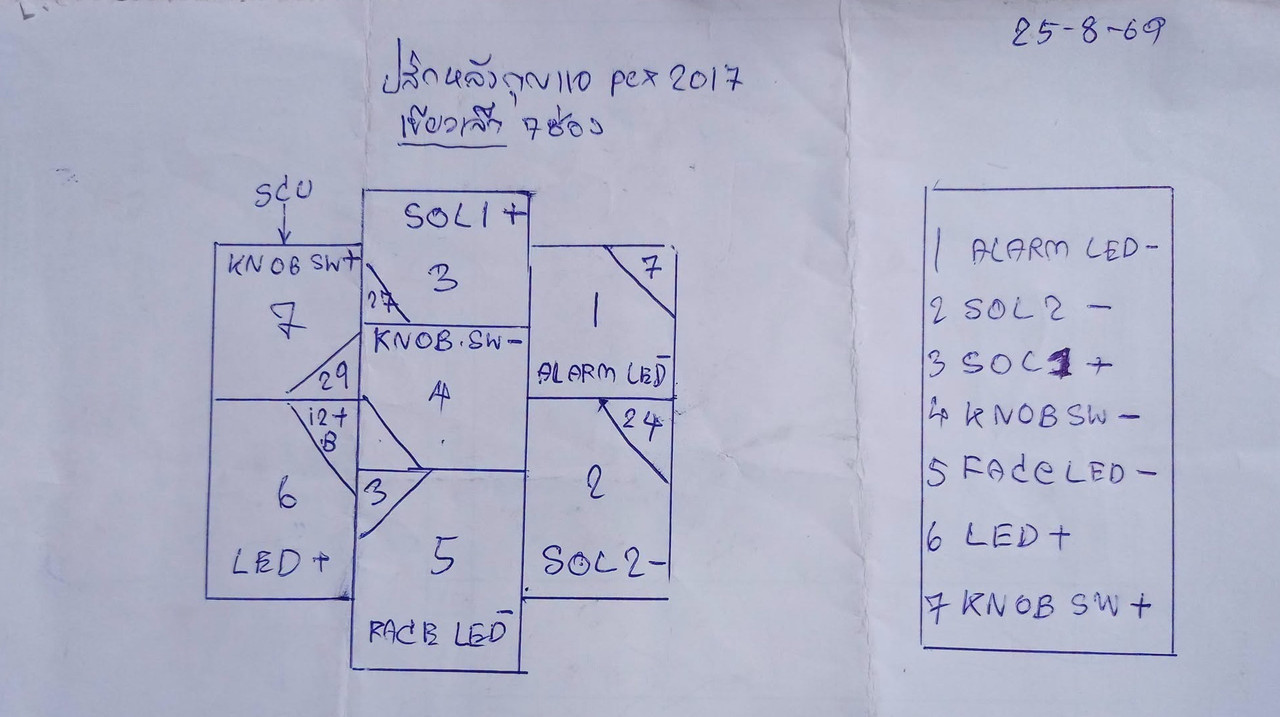 25-8-69
ปลั๊กหลังกุญแจ pcx 2017
เขียวเล็ก 7ช่อง
SCU
KNOB SW+
7
29
SOL1+
3
27
7
1
ALARM LED-
KNOB.SW-
4
12+
B
6
LED+
3
5
FACE LED-
24
2
SOL2-
1 ALARM LED-
2 SOL2 -
3 SOL1 +
4 KNOB SW -
5 FACE LED -
6 LED +
7 KNOB SW +